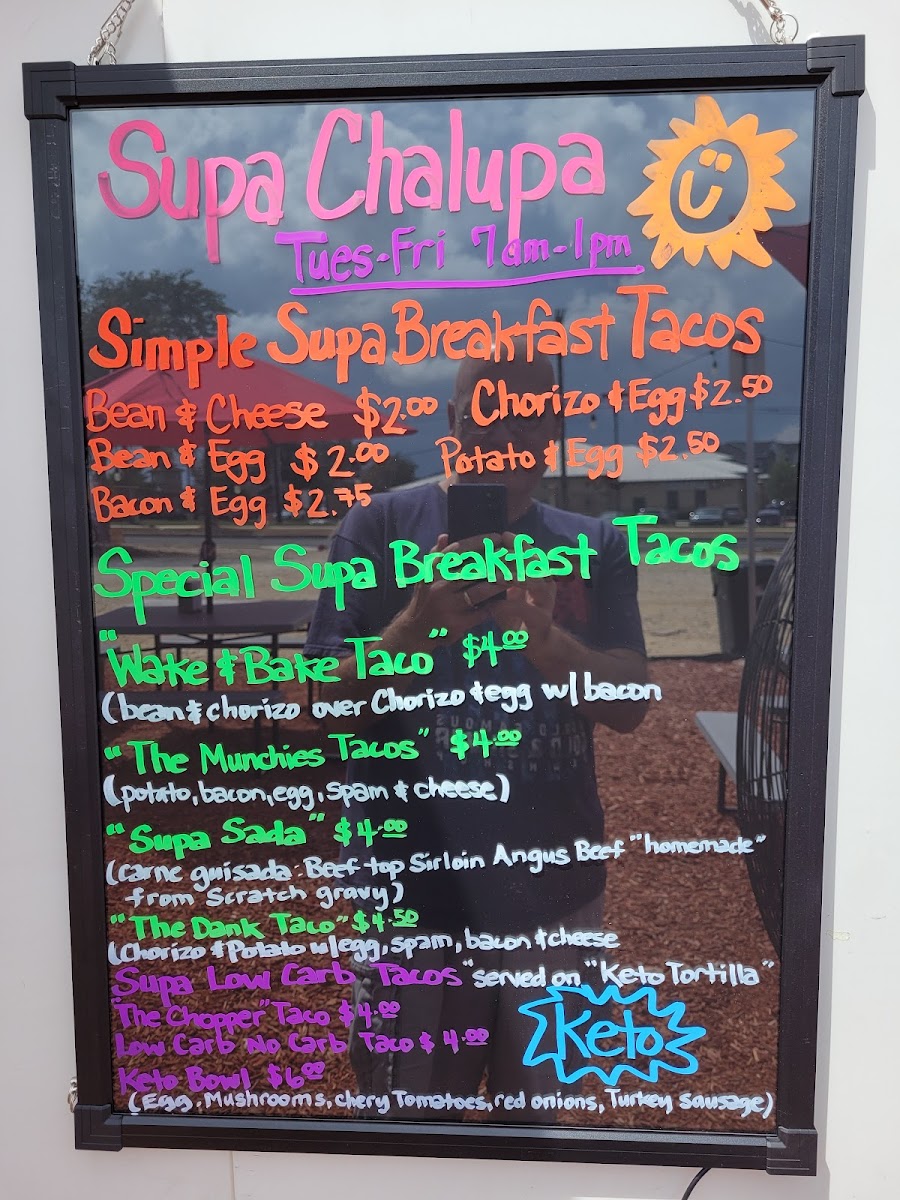 Supa Chalupa
Tues-Fri 7am-1pm
Simple Supa Breakfast Tacos
Bean & Cheese $2.00 Chorizo & Egg $2.50
Bean & Egg $2.00 Potato & Egg $2.50
Bacon & Egg $2.75
Special Supa Breakfast Tacos
"Wake & Bake Taco" $4.00
(bean & chorizo over Chorizo & egg w/ bacon
"The Munchies Tacos" $4.00
(potato, bacon, egg, spam & cheese)
"Supa Sada" $4.00
(carne guisada - Beef top Sirloin Angus Beef "homemade"
from Scratch gravy)
"The Dank Taco" $4.50
(Chorizo & Potato w/egg, spam, bacon & cheese
Supa Low Carb Tacos "served on "Keto Tortilla"
"The Chopper" Taco $4.00
Low Carb No Carb Taco $4.00
Keto
Keto Bowl $6.00
(Egg, Mushrooms, chery Tomatoes, red onions, Turkey sausage)